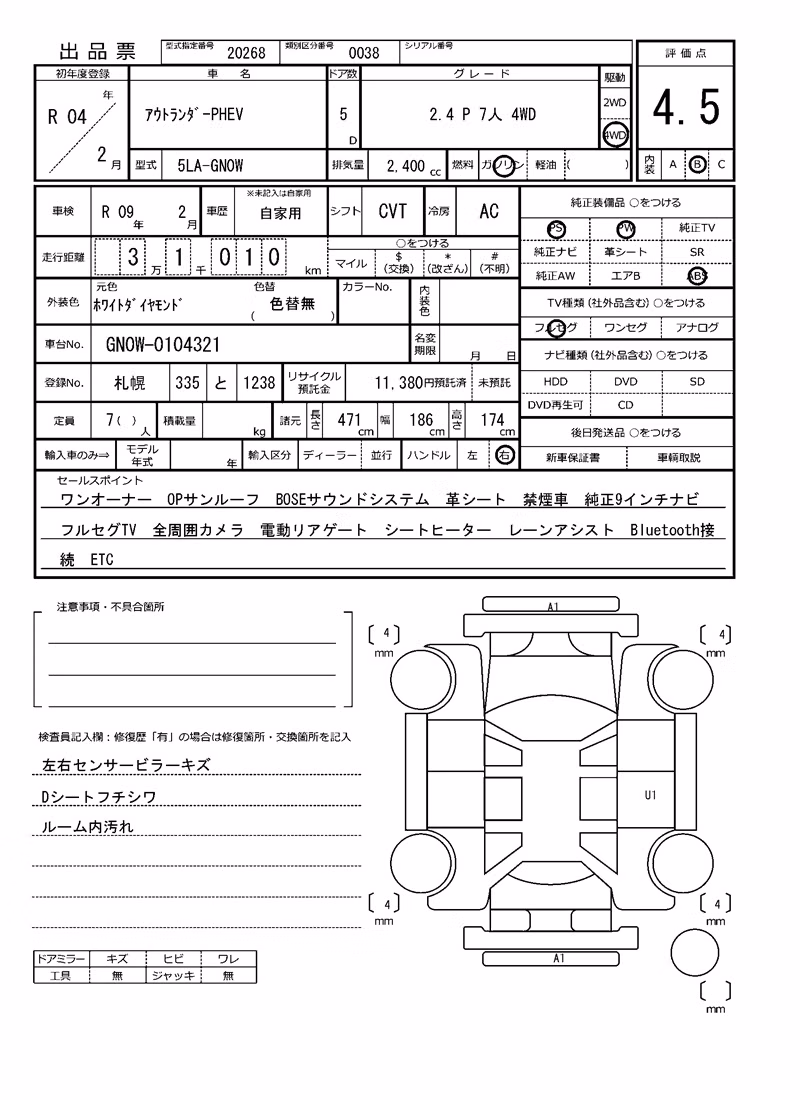 出品票 型式指定番号 20268 類別区分番号 0038 シリアル番号
初年度登録 車名 ドア数 グレード 駆動 評価点
R 04 年 2 月 ｱｳﾄﾗﾝﾀﾞｰPHEV 5 D 2.4 P 7人 4WD 2WD 4WD 4.5
型式 5LA-GN0W 排気量 2,400 cc 燃料 ガソリン 軽油 ( ) 内装 A B C
車検 R 09 年 2 月 車歴 ※未記入は自家用 自家用 シフト CVT 冷房 AC
走行距離 3 万 1 千 0 1 0 km ○をつける マイル $ (交換) * (改ざん) # (不明)
外装色 元色 ﾎﾜｲﾄﾀﾞｲﾔﾓﾝﾄﾞ 色替 ( 色替無 ) カラーNo. 内装色
車台No. GN0W-0104321 名変期限 月 日
登録No. 札幌 335 と 1238 リサイクル預託金 11,380円預託済 未預託
定員 7 ( ) 人 積載量 kg 諸元 長さ 471 cm 幅 186 cm 高さ 174 cm
輸入車のみ⇒ モデル年式 年 輸入区分 ディーラー 並行 ハンドル 左 右
純正装備品 ○をつける
PS PW 純正TV
純正ナビ 革シート SR
純正AW エアB ABS
TV種類 (社外品含む) ○をつける
フルセグ ワンセグ アナログ
ナビ種類 (社外品含む) ○をつける
HDD DVD SD
DVD再生可 CD
後日発送品 ○をつける
新車保証書 車輌取説
セールスポイント
ワンオーナー OPサンルーフ BOSEサウンドシステム 革シート 禁煙車 純正9インチナビ
フルセグTV 全周囲カメラ 電動リアゲート シートヒーター レーンアシスト Bluetooth接
続 ETC
注意事項・不具合箇所
検査員記入欄：修復歴「有」の場合は修復箇所・交換箇所を記入
左右センサーピラーキズ
Dシートフチシワ
ルーム内汚れ
ドアミラー キズ ヒビ ワレ
工具 無 ジャッキ 無
A1
[ 4 ] mm [ 4 ] mm
U1
[ 4 ] mm [ 4 ] mm
A1
[ ] mm